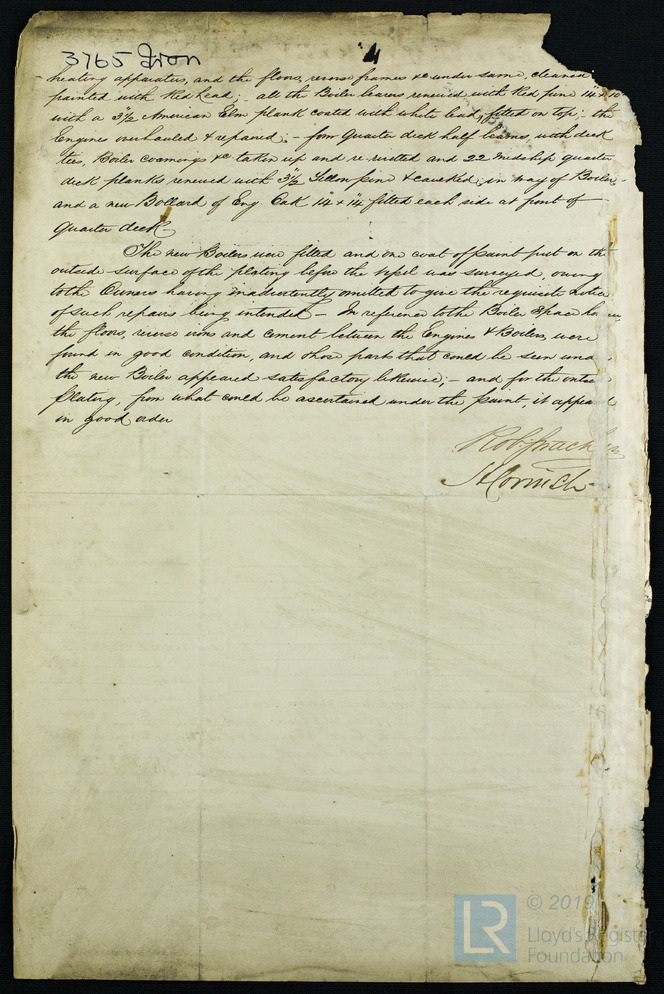 3765 Iron
heating apparatus, and the floors, reverse frames &c under same, cleaned
painted with Red Lead; all the Boiler bearers renewed with Red pine 14 x 10
with a 3½ American Elm plank coated with white lead, fitted on top; the
Engines overhauled & repaired; - four Quarter deck half beams, with deck
ties, Boiler coamings &c taken up and re-rivetted and 22 midship quarter
deck planks renewed with 3½ Yellow pine & caulked; in way of Boiler
and a new Bollard of Eng. Oak 14 x 14 fitted each side at front of
Quarter deck -
The new Boilers were fitted and one coat of paint put on the
outside surface of the plating before the vessel was surveyed, owing
to the Owners having inadvertently omitted to give the requisite notice
of such repairs being intended - In reference to the Boiler Space
the floors, reverse irons and cement between the Engines & Boilers, were
found in good condition, and those part that could be seen
the new Boiler appeared satisfactory likewise; - and for the
plating, from what could be ascertained under the paint, it
in good order
J Cornish
© 2019
LR
Lloyd's Register
Foundation